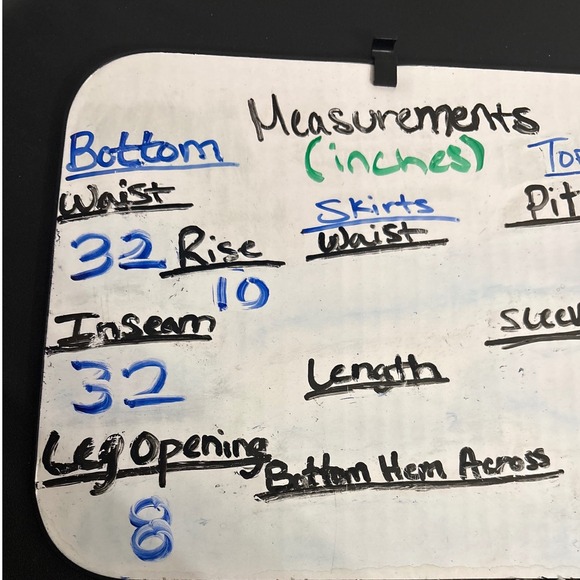 Measurements
(inches)
Bottom
Waist
32
Rise
10
Inseam
32
Leg Opening
8
Skirts
Waist
Length
Bottom Hem Across
Pit